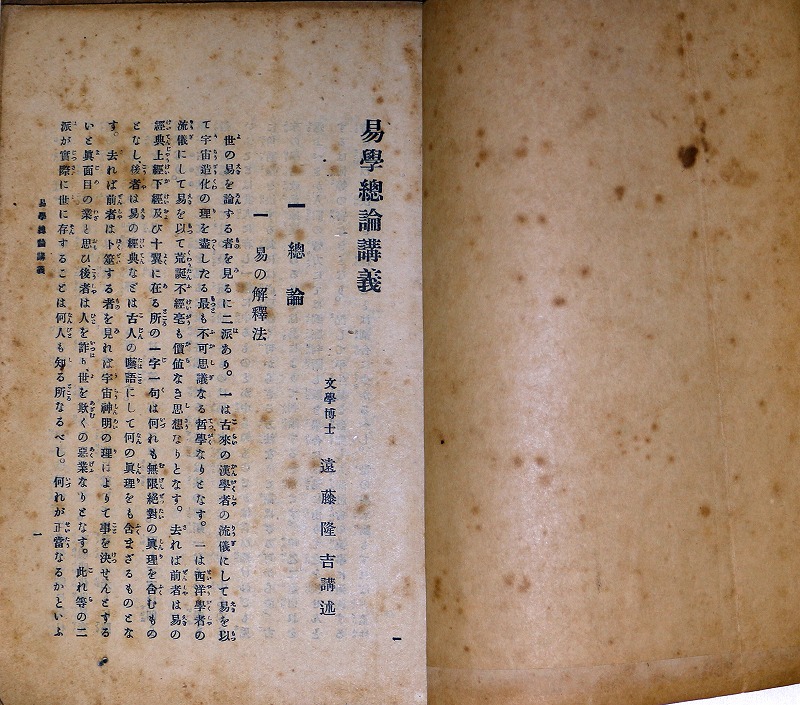 易學總論講義
文學博士 遠藤隆吉講述
一 總論
一 易の解釋法
世の易を論ずる者を見るに二派あり。一は古來の漢學者の流儀にして易を以
て宇宙造化の理を盡したる最も不可思議なる哲學なりとなす。二は西洋學者の
流儀にして易を以て荒誕不經毫も價値なき思想なりとなす。去れば前者は易の
經典上經下經及び十翼に在る所の一字一句は何れも無限絕對の眞理を含むもの
となし後者は易の經典などは古人の囈語にして何の眞理をも含まざるものとな
す。去れば前者は卜筮する者を見れば宇宙神明の理によりて事を決せんとする
いと眞面目の業と思ひ後者は人を詐り世を欺くの惡業なりとなす。此れ等の二
派が實際に世に存することは何人も知る所なるべし。何れが正當なるかといふ
易學總論講義
一
一